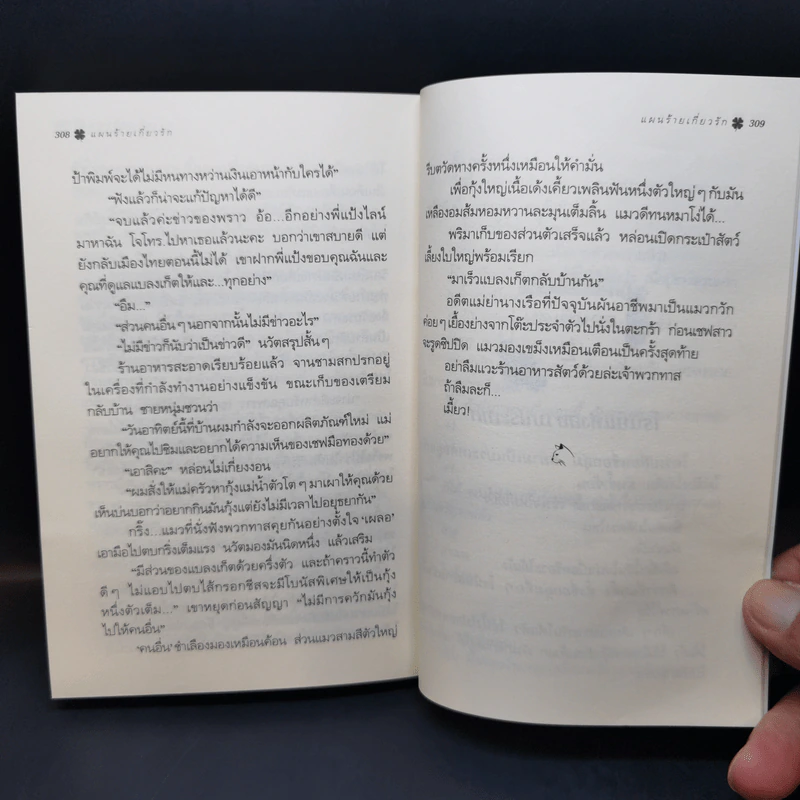 308 แผนร้ายเกี่ยวรัก
ป้าพิมพ์จะได้ไม่มีหนทางหว่านเงินเอาหน้ากับใครได้”
“ฟังแล้วก็น่าจะแก้ปัญหาได้ดี”
“จบแล้วค่ะข่าวของพราว อ้อ...อีกอย่างพี่แป้งไลน์
มาหาฉัน โจโทร.ไปหาเธอแล้วนะคะ บอกว่าเขาสบายดี แต่
ยังกลับเมืองไทยตอนนี้ไม่ได้ เขาฝากพี่แป้งขอบคุณฉันและ
คุณที่ดูแลแบลงเก็ตให้และ...ทุกอย่าง”
“อืม...”
“ส่วนคนอื่นๆ นอกจากนั้นไม่มีข่าวอะไร”
“ไม่มีข่าวก็นับว่าเป็นข่าวดี” นวัตสรุปสั้นๆ
ร้านอาหารสะอาดเรียบร้อยแล้ว จานชามสกปรกอยู่
ในเครื่องที่กำลังทำงานอย่างแข็งขัน ขณะเก็บของเตรียม
กลับบ้าน ชายหนุ่มชวนว่า
“วันอาทิตย์นี้ที่บ้านผมกำลังจะออกผลิตภัณฑ์ใหม่ แม่
อยากให้คุณไปชิมและอยากได้ความเห็นของเชฟมือทองด้วย”
“เอาสิคะ” หล่อนไม่เกี่ยงงอน
“ผมสั่งให้แม่ครัวหากุ้งแม่น้ำตัวโตๆ มาเผาให้คุณด้วย
เห็นบ่นบอกว่าอยากกินมันกุ้งแต่ยังไม่มีเวลาไปอยุธยากัน”
กริ๊ง...แมวที่นั่งฟังพวกทาสคุยกันอย่างตั้งใจ ‘เผลอ’
เอามือไปตบกริ่งเต็มแรง นวัตมองมันนิดหนึ่ง แล้วเสริม
“มีส่วนของแบลงเก็ตด้วยครึ่งตัว และถ้าคราวนี้ทำตัว
ดีๆ ไม่แอบไปตบไส้กรอกชีสจะมีโบนัสพิเศษให้เป็นกุ้ง
หนึ่งตัวเต็ม...” เขาหยุดก่อนสัญญา “ไม่มีการควักมันกุ้ง
ไปให้คนอื่น”
‘คนอื่น’ ชำเลืองมองเหมือนค้อน ส่วนแมวสามสีตัวใหญ่
แผนร้ายเกี่ยวรัก 309
รีบตวัดหางครั้งหนึ่งเหมือนให้คำมั่น
เพื่อกุ้งใหญ่เนื้อเด้งเคี้ยวเพลินฟันหนึ่งตัวใหญ่ๆ กับมัน
เหลืองอมส้มหอมหวานละมุนเต็มลิ้น แมวดีทนหมาโง่ได้...
พริมาเก็บของส่วนตัวเสร็จแล้ว หล่อนเปิดกระเป๋าสัตว์
เลี้ยงใบใหญ่พร้อมเรียก
“มาเร็วแบลงเก็ตกลับบ้านกัน”
อดีตแม่ย่านางเรือที่ปัจจุบันผันอาชีพมาเป็นแมวกวัก
ค่อยๆ เยื้องย่างจากโต๊ะประจำตัวไปนั่งในตะกร้า ก่อนเชฟสาว
จะรูดซิปปิด แมวมองเขม็งเหมือนเตือนเป็นครั้งสุดท้าย
อย่าลืมแวะร้านอาหารสัตว์ด้วยล่ะเจ้าพวกทาส
ถ้าลืมละก็...
เมี้ยว!